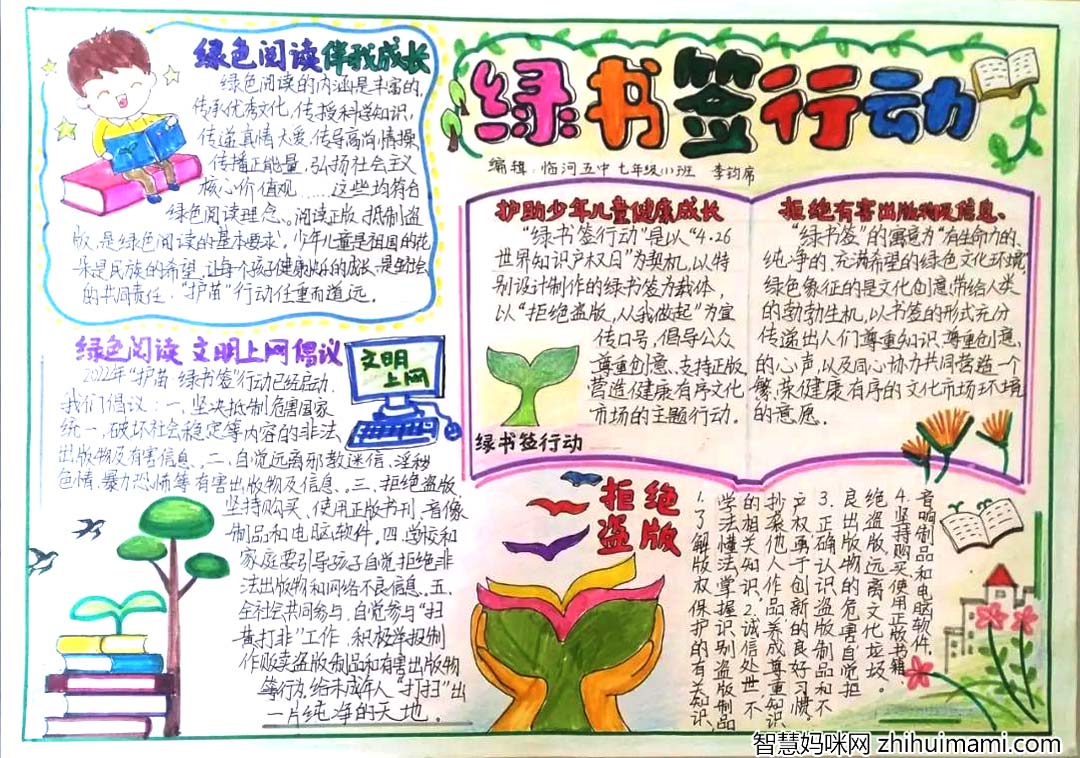 绿书签行动
编辑：临河五中 七年级小班 李钧席
绿色阅读伴我成长
绿色阅读的内涵是丰富的，
传承优秀文化，传授科学知识，
传递真情大爱，传导高尚情操，
传播正能量，弘扬社会主义
核心价值观……这些均符合
绿色阅读理念。阅读正版，抵制盗
版，是绿色阅读的基本要求，少年儿童是祖国的花
朵是民族的希望，让每个孩子健康快乐的成长，是
的共同责任，“护苗”行动任重而道远。
护助少年儿童健康成长
“绿书签行动”是以“4·26
世界知识产权日”为契机，以特
别设计制作的绿书签为载体，
以“拒绝盗版，从我做起”为宣
传口号，倡导公众
尊重创意、支持正版，
营造健康有序文化
市场的主题行动。
绿书签行动
拒绝有害出版物及信息、
“绿书签”的寓意为“有生命力的、
纯净的、充满希望的绿色文化环境”
绿色象征的是文化创意带给人类
的勃勃生机，以书签的形式充分
传递出人们尊重知识、尊重创意、
的心声，以及同心协力共同营造一个
繁荣健康有序的文化市场环境
的意愿。
绿色阅读 文明上网倡议
文明
上网
2022年“护苗·绿书签”行动已经启动，
我们倡议：一、坚决抵制危害国家
统一，破坏社会稳定等内容的非法
出版物及有害信息、二、自觉远离邪教迷信、淫秽
色情、暴力恐怖等有害出版物及信息、三、拒绝盗版，
坚持购买、使用正版书刊、音像
制品和电脑软件，四、学校和
家庭要引导孩子自觉拒绝非
法出版物和网络不良信息、五、
全社会共同参与，自觉参与“扫
黄打非”工作，积极举报制
作贩卖盗版制品和有害出版物
等行为，给未成年人“打扫”出
一片纯净的天地。
拒绝
盗版
1.了解版权保护的有关知识，
学法懂法掌握识别盗版制品
的相关知识2.诚信处世不
抄袭他人作品养成尊重知识
产权勇于创新的良好习惯
3.正确认识盗版制品和不
良出版物的危害自觉拒
绝盗版，远离文化垃圾。
4.坚持购买使用正版书籍、
音响制品和电脑软件，
智慧妈咪网 zhihuimami.com